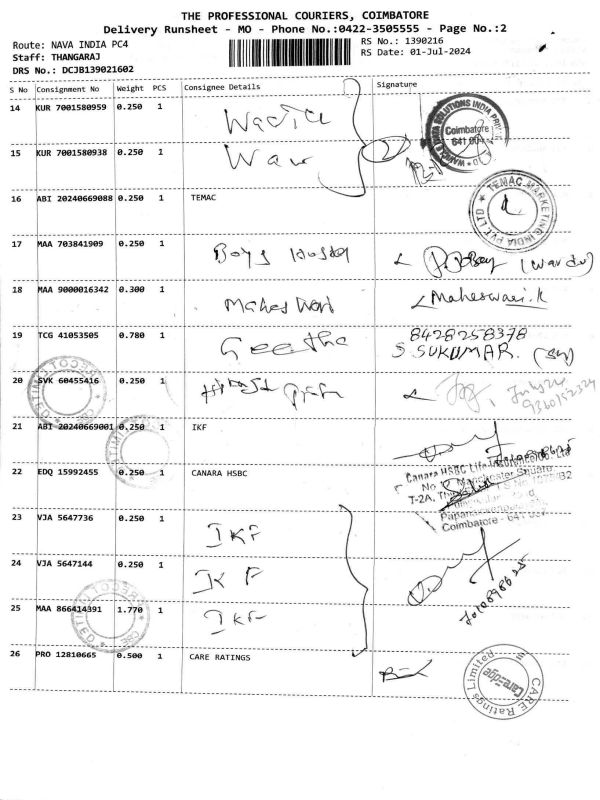 THE PROFESSIONAL COURIERS, COIMBATORE
Delivery Runsheet - MO - Phone No.:0422-3505555 - Page No.:2
Route: NAVA INDIA PC4
RS No.: 1390216
Staff: THANGARAJ
RS Date: 01-Jul-2024
DRS No.: DCJB139021602
S No Consignment No Weight PCS Consignee Details Signature
14 KUR 7001580959 0.250 1
Coimbatore
15 KUR 7001580938 0.250 1
16 ABI 20240669088 0.250 1 TEMAC
TEMAC MARKETING INDIA PVT LTD
17 MAA 703841909 0.250 1 Boys Hostel
18 MAA 9000016342 0.300 1 Maheswari Maheswari.K
19 TCG 41053505 0.780 1 Geetha 8428258378
S. SUKUMAR.
20 SVK 60455416 0.250 1
21 ABI 20240669001 0.250 1 IKF
22 EDQ 15992455 0.250 1 CANARA HSBC
Canara HSBC Life Insurance Co. Ltd
Coimbatore - 641 037
23 VJA 5647736 0.250 1 IKF
24 VJA 5647144 0.250 1 IKF
7010898625
25 MAA 866414391 1.770 1 IKF
26 PRO 12810665 0.500 1 CARE RATINGS
CARE Ratings Limited
CareEdge